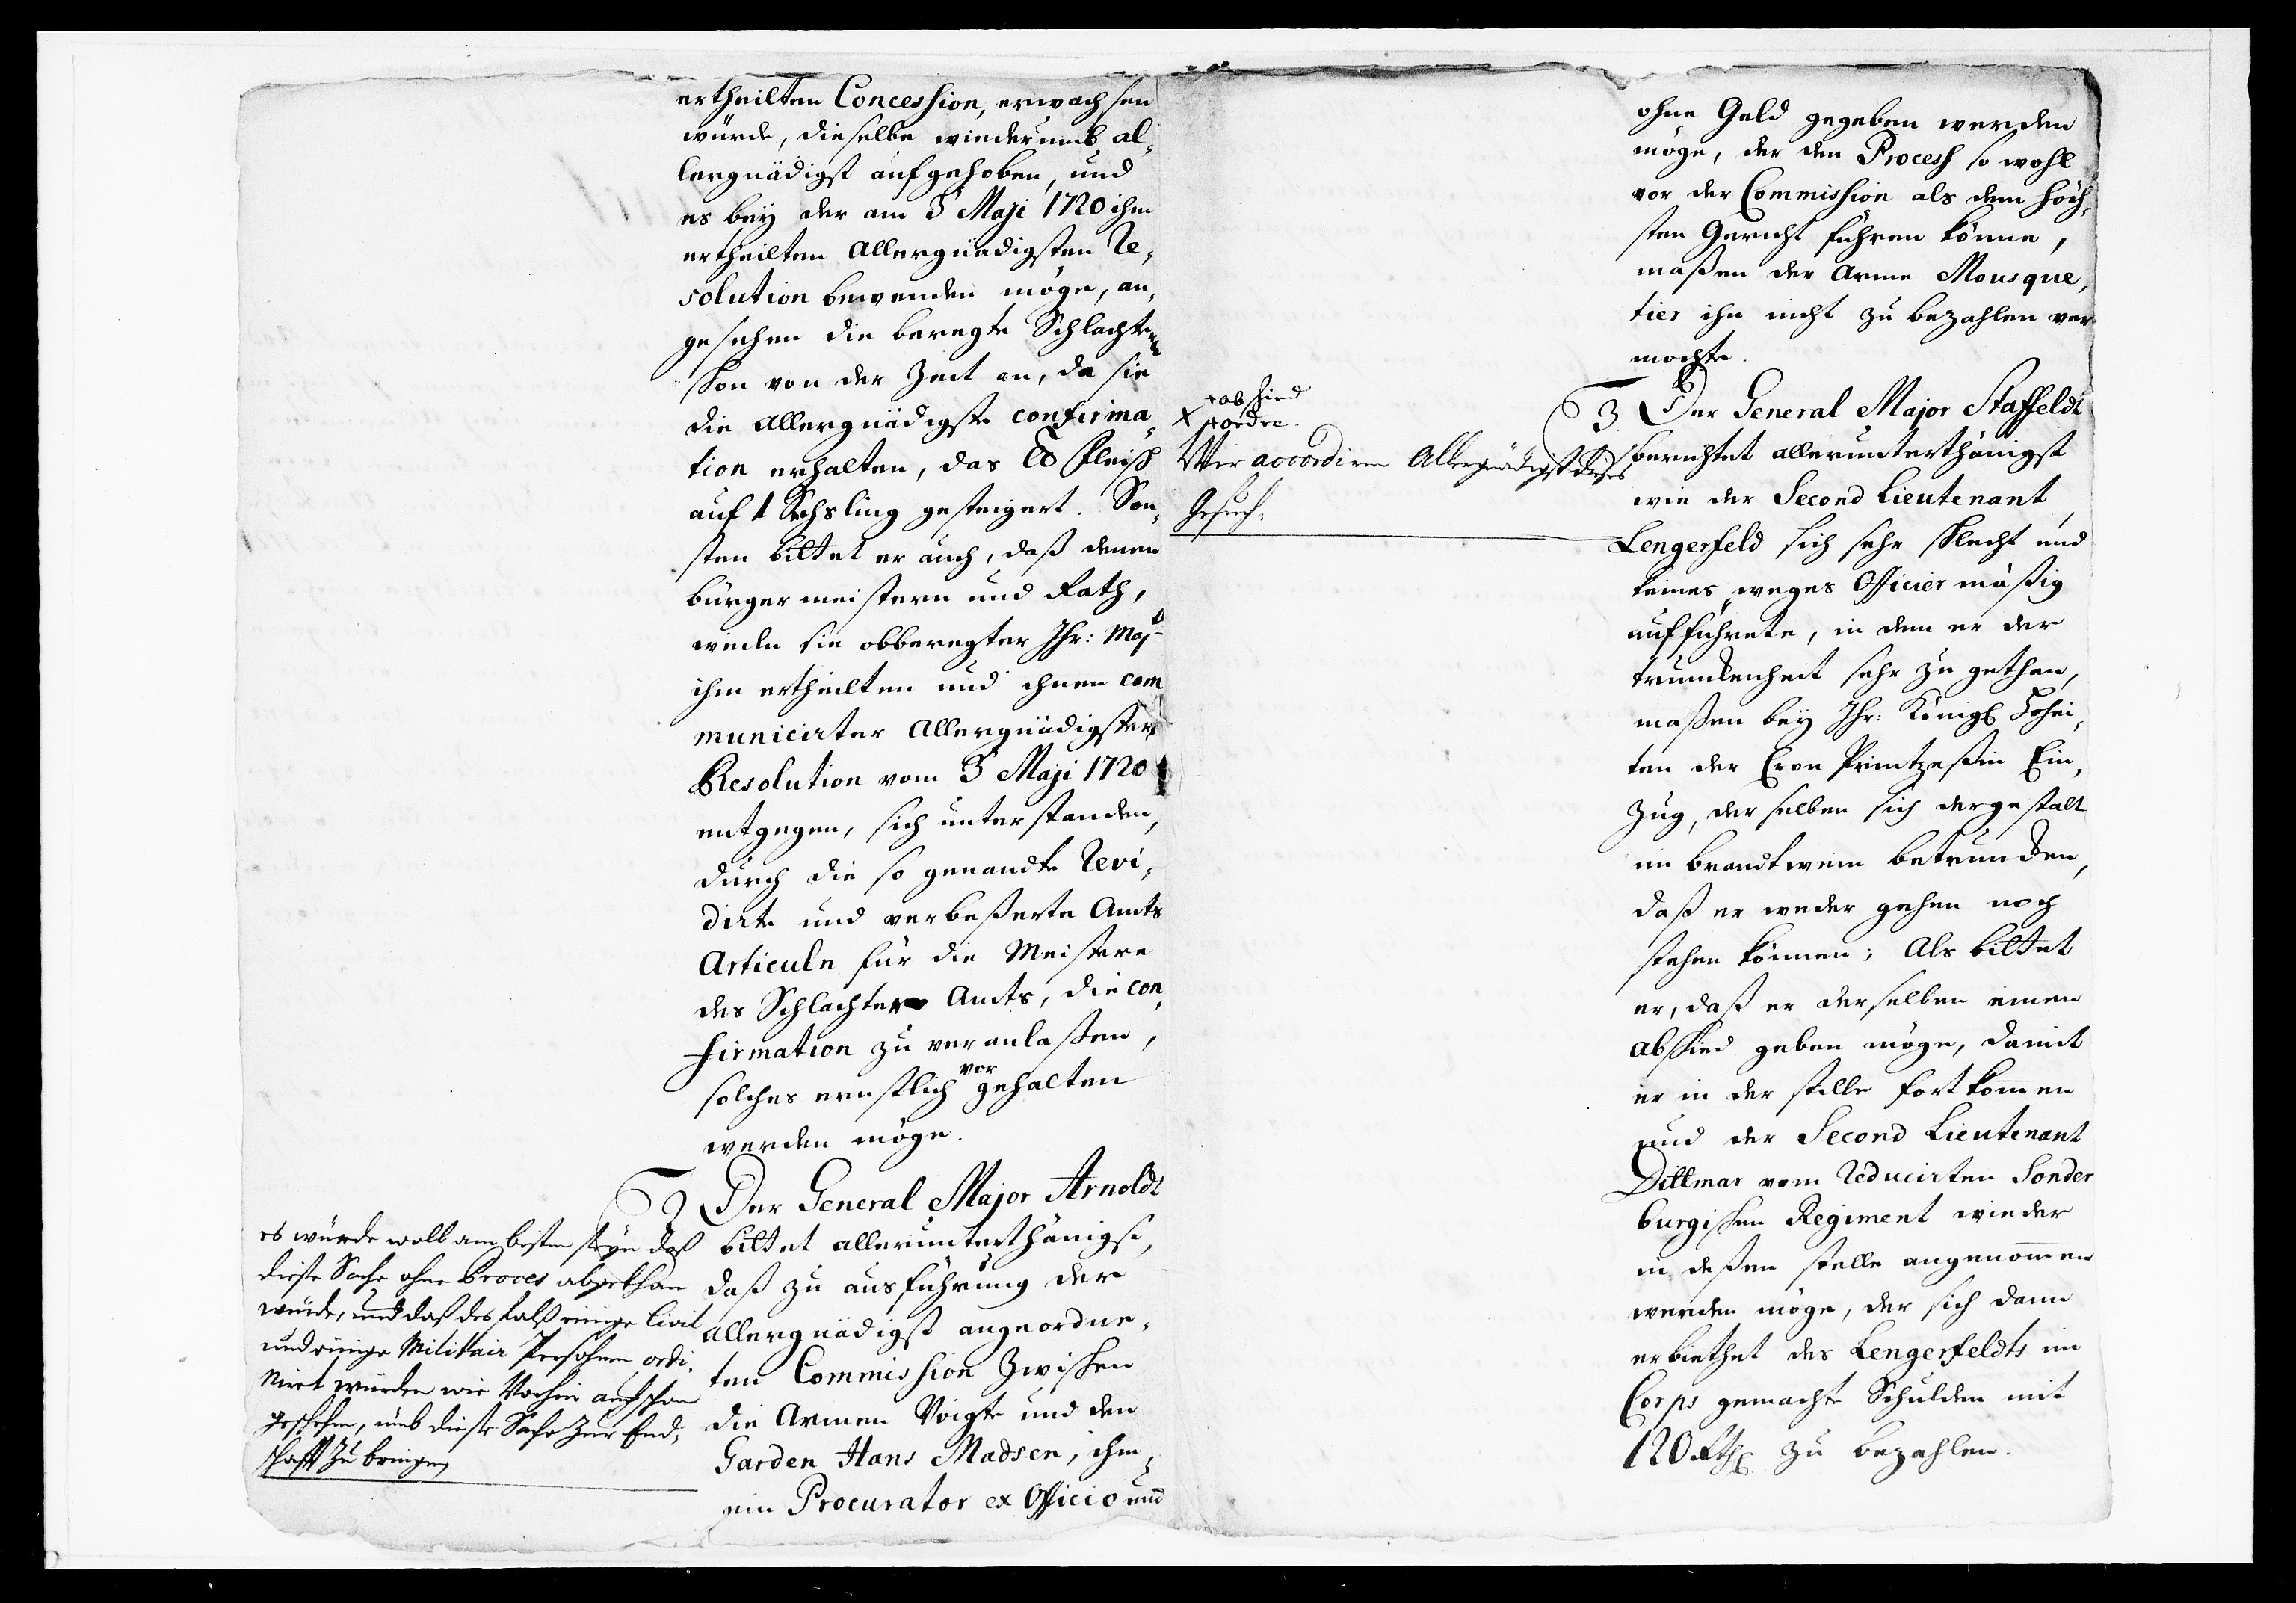 ertheilten Concession, erwachsen
würde, dieselbe wiederumb al-
lergnädigst aufgehoben, und
es bey der am 3 Maji 1720 ihm
ertheilten Allergnädigsten Re-
solution bewenden möge, an-
gesehen die beregte Schlachter
schon von der Zeit an, da sie
die Allergnädigste confirma-
tion erhalten, das ℔ Fleisch
auf 1 Sechsling gesteigert. Son-
sten bittet er auch, daß denen
bürgermeistern und Rath,
weiln sie obberegter Ihr: Maj:
ihm ertheilten und ihnen com
municirter Allergnädigster
Resolution vom 3 Maji 1720
entgegen, sich unterstanden,
durch die so genandte Revi-
dirte und verbeßerte Amts
Articuln für die Meistere
des Schlachter Amts, die con-
firmation zu veranlaßen,
solches ernstlich vor gehalten
werden möge.
2 Der General Major Arnoldt
bittet allerunterthänigst,
daß zu ausführung der
allergnädigst angeordne-
ten Commission zwischen
die Armen Voigte und den
Garden Hans Madsen, ihm
ein Procurator ex Officio und
es würde woll am besten seyn daß
dieße Sache ohne Proces abgethan
würde, und daß des falß einige Civil
und einige Militair Persohnen ordi-
niret würden wie Vorhin auch schon
geschehen, umb dieße Sache zur End-
schafft zu bringen
ohne Geld gegeben werden
möge, der den Process so wohl
vor der Commission als dem höch-
sten Gericht führen könne,
maßen der Arme Mousque-
tier ihn nicht zu bezahlen ver-
mochte.
3 Der General Major Staffeldt
berichtet allerunterthänigst
wie der Second Lieutenant
Lengerfeld sich sehr schlecht und
keines weges Officier mäßig
aufführete, in dem er der
trunckenheit sehr zu gethan,
maßen bey Ihr: Königl Hohei-
ten der Cron Printzeßin Ein-
zug, derselben sich dergestalt
im brandtwein betruncken,
daß er weder gehen noch
stehen können; Als bittet
er, daß er derselben einen
abschied geben möge, damit
er in der stille fortkommen
und der Second Lieutenant
Dittmar vom reducirten Sonder
burgischen Regiment wieder
in deßen stelle angenommen
werden möge, der sich dann
erbiethet des Lengerfeldts im
Corps gemachte Schulden mit
120 Rthl zu bezahlen.
+ abschied
x + ordre.
Wir accordiren Allergnädigst dießes
Gesuch.